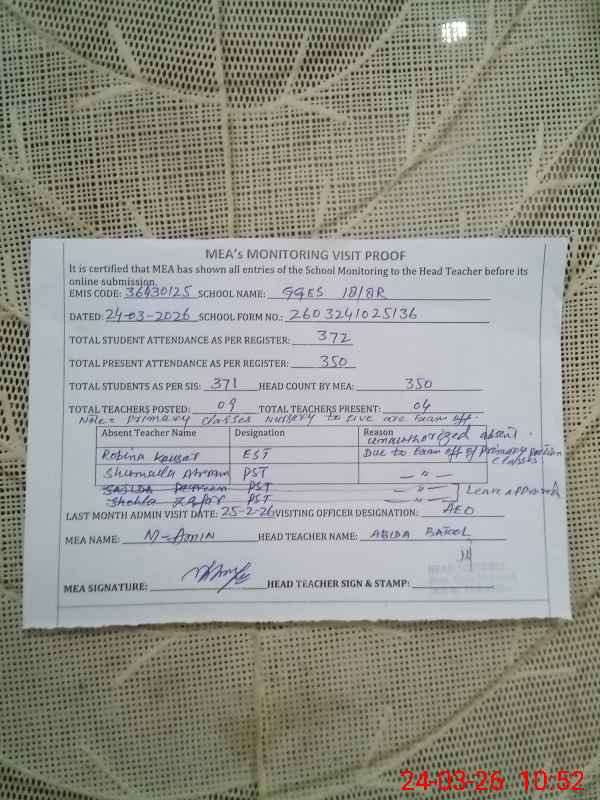 MEA's MONITORING VISIT PROOF
It is certified that MEA has shown all entries of the School Monitoring to the Head Teacher before its
online submission.
EMIS CODE: 36430125 SCHOOL NAME: GGES 18/8R
DATED: 24-03-2026 SCHOOL FORM NO.: 2603241025136
TOTAL STUDENT ATTENDANCE AS PER REGISTER: 372
TOTAL PRESENT ATTENDANCE AS PER REGISTER: 350
TOTAL STUDENTS AS PER SIS: 371 HEAD COUNT BY MEA: 350
TOTAL TEACHERS POSTED: 09 TOTAL TEACHERS PRESENT: 04
Note= Primary classes Nursery to five are Exam off.
Absent Teacher Name Designation Reason
unauthorized absent.
Robina Kausar EST Due to Exam off of Primary portion
classes
Shumaila PST — " —
PST — " —
Shehla Zafar PST — " — Leave approved
LAST MONTH ADMIN VISIT DATE: 25-2-26 VISITING OFFICER DESIGNATION: AEO
MEA NAME: M-Amin HEAD TEACHER NAME: ABIDA BATOOL
MEA SIGNATURE: HEAD TEACHER SIGN & STAMP:
24-03-26 10:52